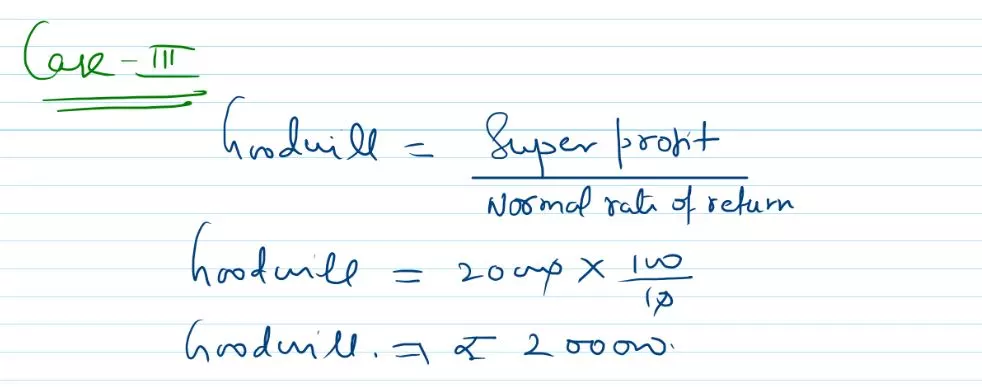 Case - III
Goodwill = Super profit
Normal rate of return
Goodwill = 20000 × 100/10
Goodwill. = ₹ 200000.